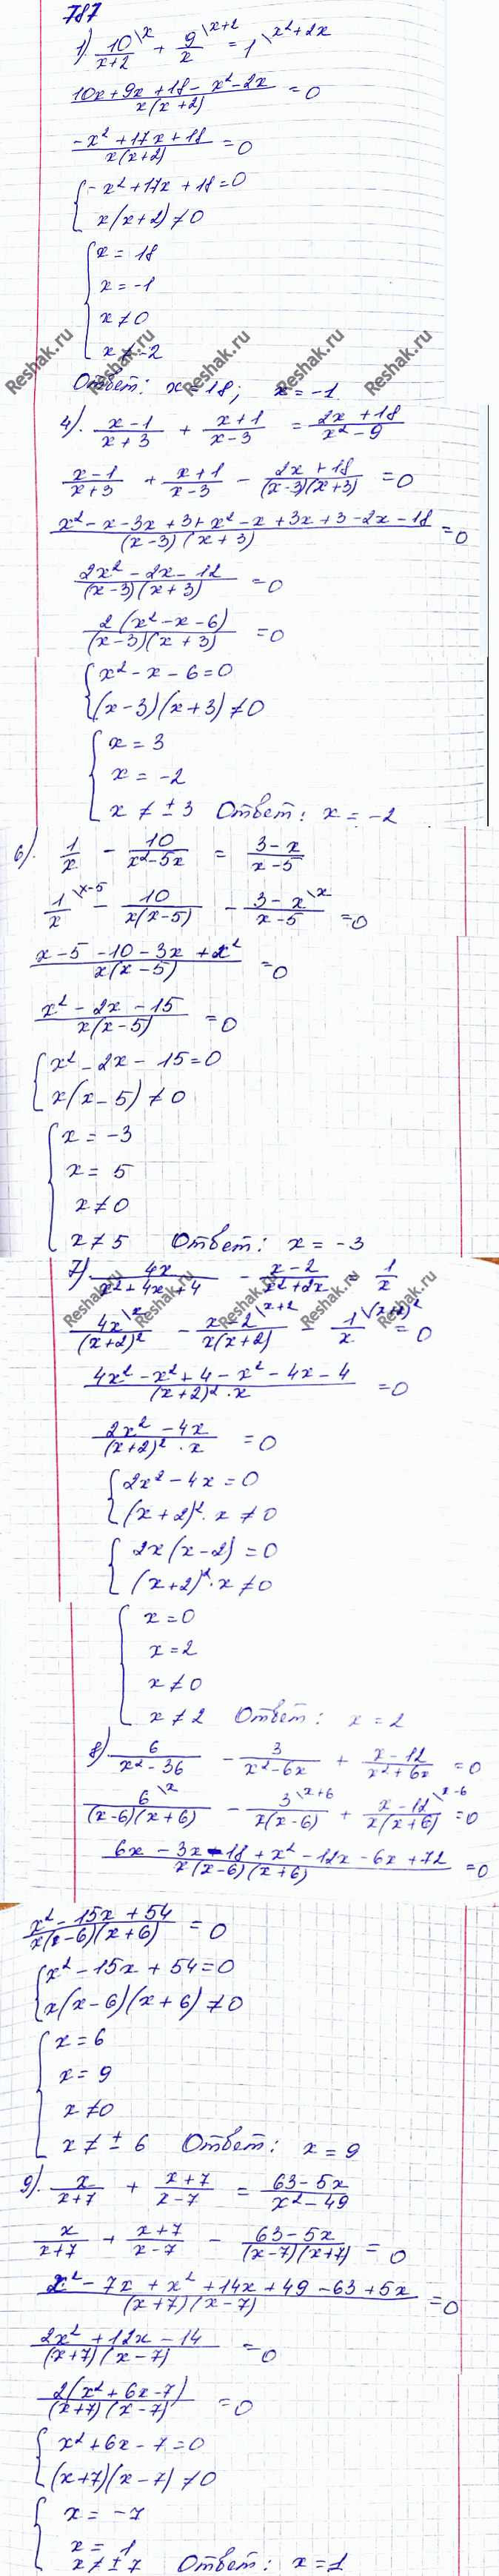 787
1). 10\x / x+2 + 9\x+2 / x = 1\x²+2x
10x+9x+18-x²-2x / x(x+2) = 0
-x²+17x+18 / x(x+2) = 0
{ -x²+17x+18=0
x(x+2)≠0
{ x = 18
x = -1
x ≠ 0
x ≠ -2
Reshak.ru Reshak.ru Reshak.ru Reshak.ru
Ответ: x=18; x=-1
4). x-1 / x+3 + x+1 / x-3 = 2x+18 / x²-9
x-1 / x+3 + x+1 / x-3 - 2x+18 / (x-3)(x+3) = 0
x²-x-3x+3+x²-x+3x+3-2x-18 / (x-3)(x+3) = 0
2x²-2x-12 / (x-3)(x+3) = 0
2(x²-x-6) / (x-3)(x+3) = 0
{ x²-x-6=0
(x-3)(x+3)≠0
{ x = 3
x = -2
x ≠ ±3 Ответ: x = -2
6). 1 / x - 10 / x²-5x = 3-x / x-5
1\x-5 / x - 10 / x(x-5) - 3-x\x / x-5 = 0
x-5-10-3x+x² / x(x-5) = 0
x²-2x-15 / x(x-5) = 0
{ x²-2x-15=0
x(x-5)≠0
{ x = -3
x = 5
x ≠ 0
x ≠ 5 Ответ: x = -3
7) 4x / x²+4x+4 - x-2 / x²+2x = 1 / x
Reshak.ru Reshak.ru Reshak.ru Reshak.ru
4x\x / (x+2)² - x-2\x+2 / x(x+2) - 1\(x+2)² / x = 0
4x²-x²+4-x²-4x-4 / (x+2)²·x = 0
2x²-4x / (x+2)²·x = 0
{ 2x²-4x=0
(x+2)²·x≠0
{ 2x(x-2)=0
(x+2)²·x≠0
{ x=0
x=2
x≠0
x≠2 Ответ: x=2
8) 6 / x²-36 - 3 / x²-6x + x-12 / x²+6x = 0
6\x / (x-6)(x+6) - 3\x+6 / x(x-6) + x-12\x-6 / x(x+6) = 0
6x-3x-18+x²-12x-6x+72 / x(x-6)(x+6) = 0
x²-15x+54 / x(x-6)(x+6) = 0
{ x²-15x+54=0
x(x-6)(x+6)≠0
{ x=6
x=9
x≠0
x≠±6 Ответ: x=9
9). x / x+7 + x+7 / x-7 = 63-5x / x²-49
x / x+7 + x+7 / x-7 - 63-5x / (x-7)(x+7) = 0
x²-7x+x²+14x+49-63+5x / (x+7)(x-7) = 0
2x²+12x-14 / (x+7)(x-7) = 0
2(x²+6x-7) / (x+7)(x-7) = 0
{ x²+6x-7=0
(x+7)(x-7)≠0
{ x = -7
x = 1
x ≠ ±7 Ответ: x=1